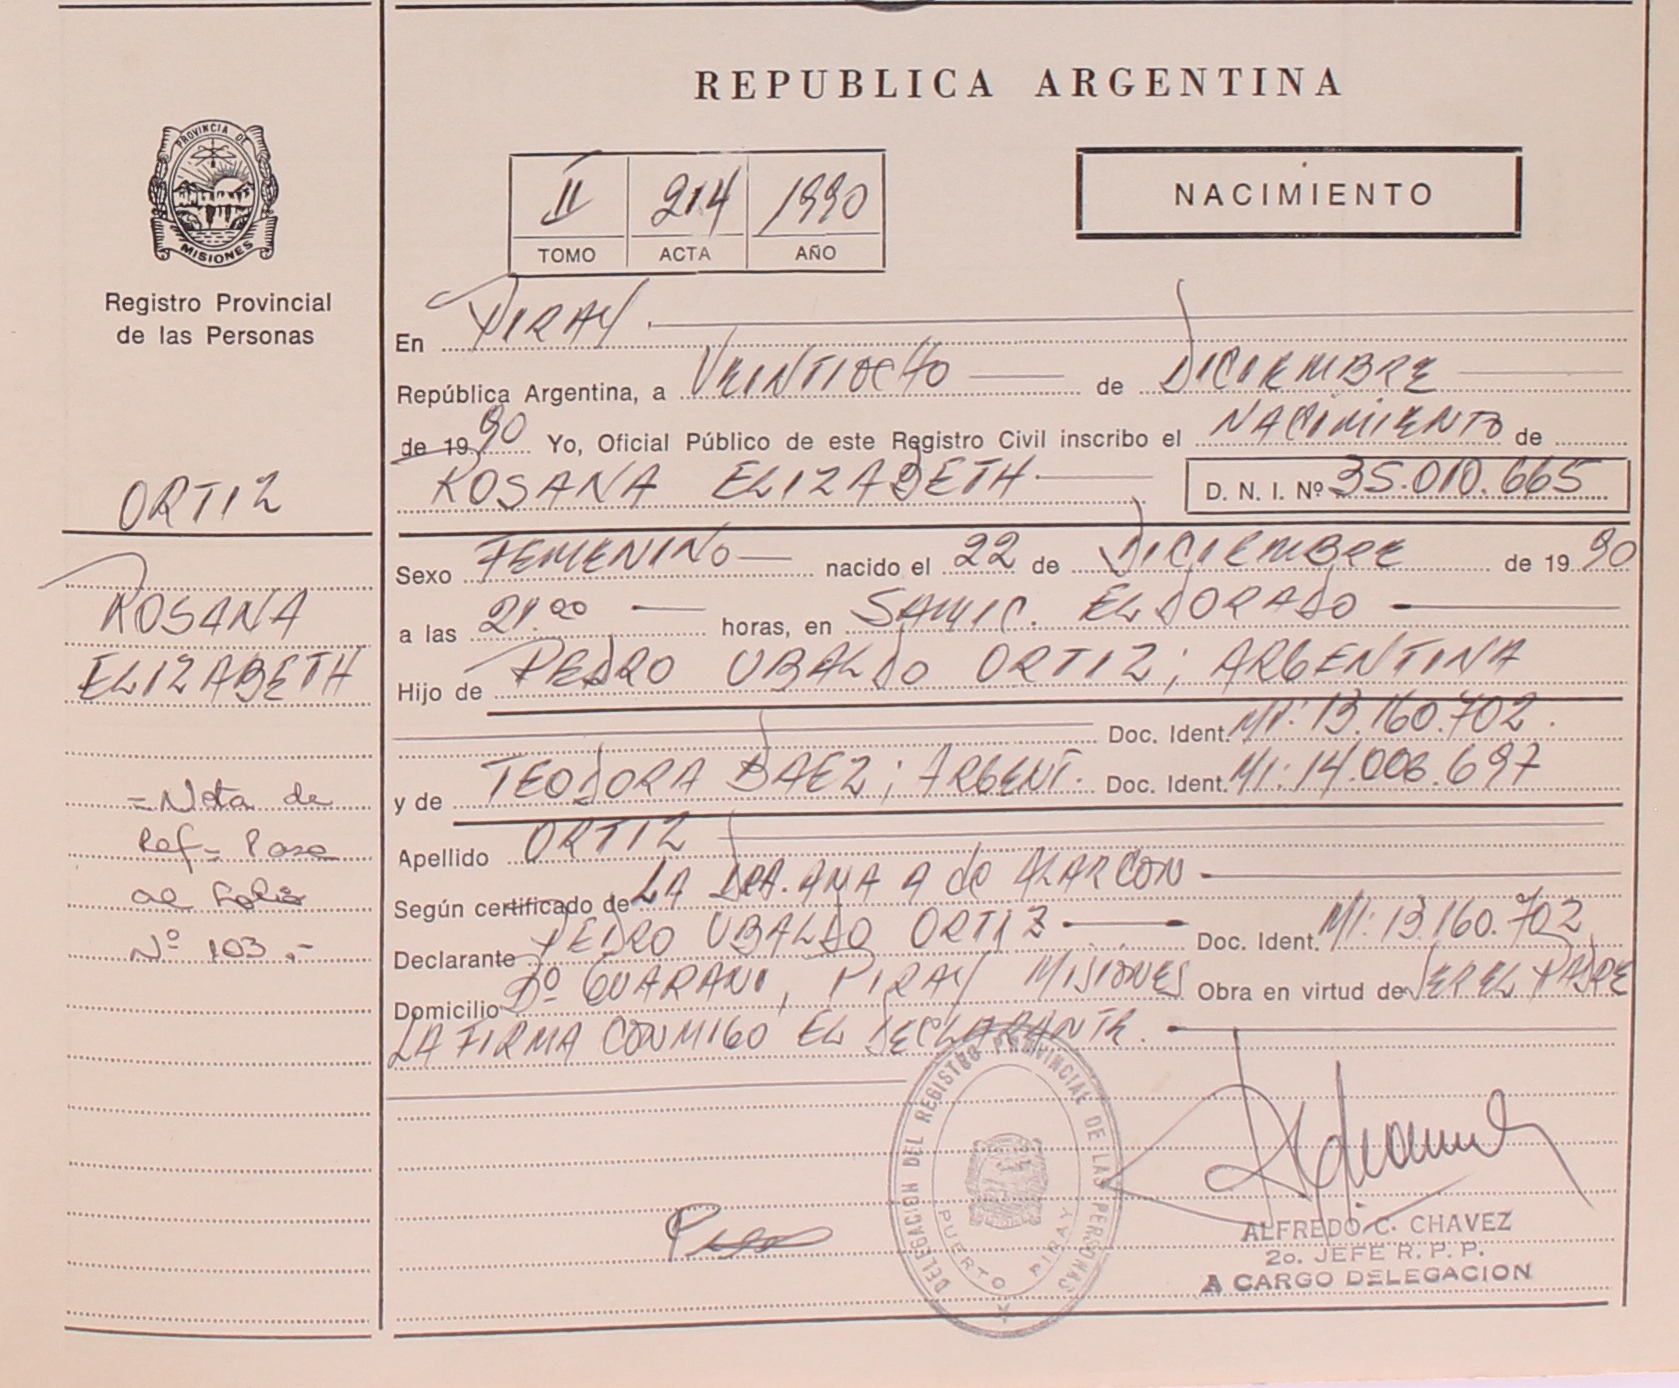 REPUBLICA ARGENTINA
PROVINCIA DE
MISIONES
Registro Provincial
de las Personas
II 214 1990
TOMO ACTA AÑO
NACIMIENTO
En PIRAY
República Argentina, a VEINTIOCHO de DICIEMBRE
de 1990 Yo, Oficial Público de este Registro Civil inscribo el NACIMIENTO de
ROSANA ELIZABETH D. N. I. Nº 35.010.665
Sexo FEMENINO nacido el 22 de DICIEMBRE de 1990
a las 21.00 horas, en SAMIC. ELDORADO
Hijo de PEDRO UBALDO ORTIZ; ARGENTINA
Doc. Ident. MI: 13.160.702.
y de TEODORA BAEZ; ARGENT. Doc. Ident. MI: 14.006.697
Apellido ORTIZ
Según certificado de LA DRA. ANA A de ALARCON
Declarante PEDRO UBALDO ORTIZ Doc. Ident. MI: 13.160.702
Domicilio Bº GUARANI, PIRAY MISIONES Obra en virtud de SER EL PADRE
LA FIRMA CONMIGO EL DECLARANTE.
ORTIZ
ROSANA
ELIZABETH
=Nota de
Ref= Pase
al Folio
Nº 103.-
DELEGACION DEL REGISTRO PROVINCIAL DE LAS PERSONAS
PUERTO PIRAY
ALFREDO C. CHAVEZ
2o. JEFE R. P. P.
A CARGO DELEGACION